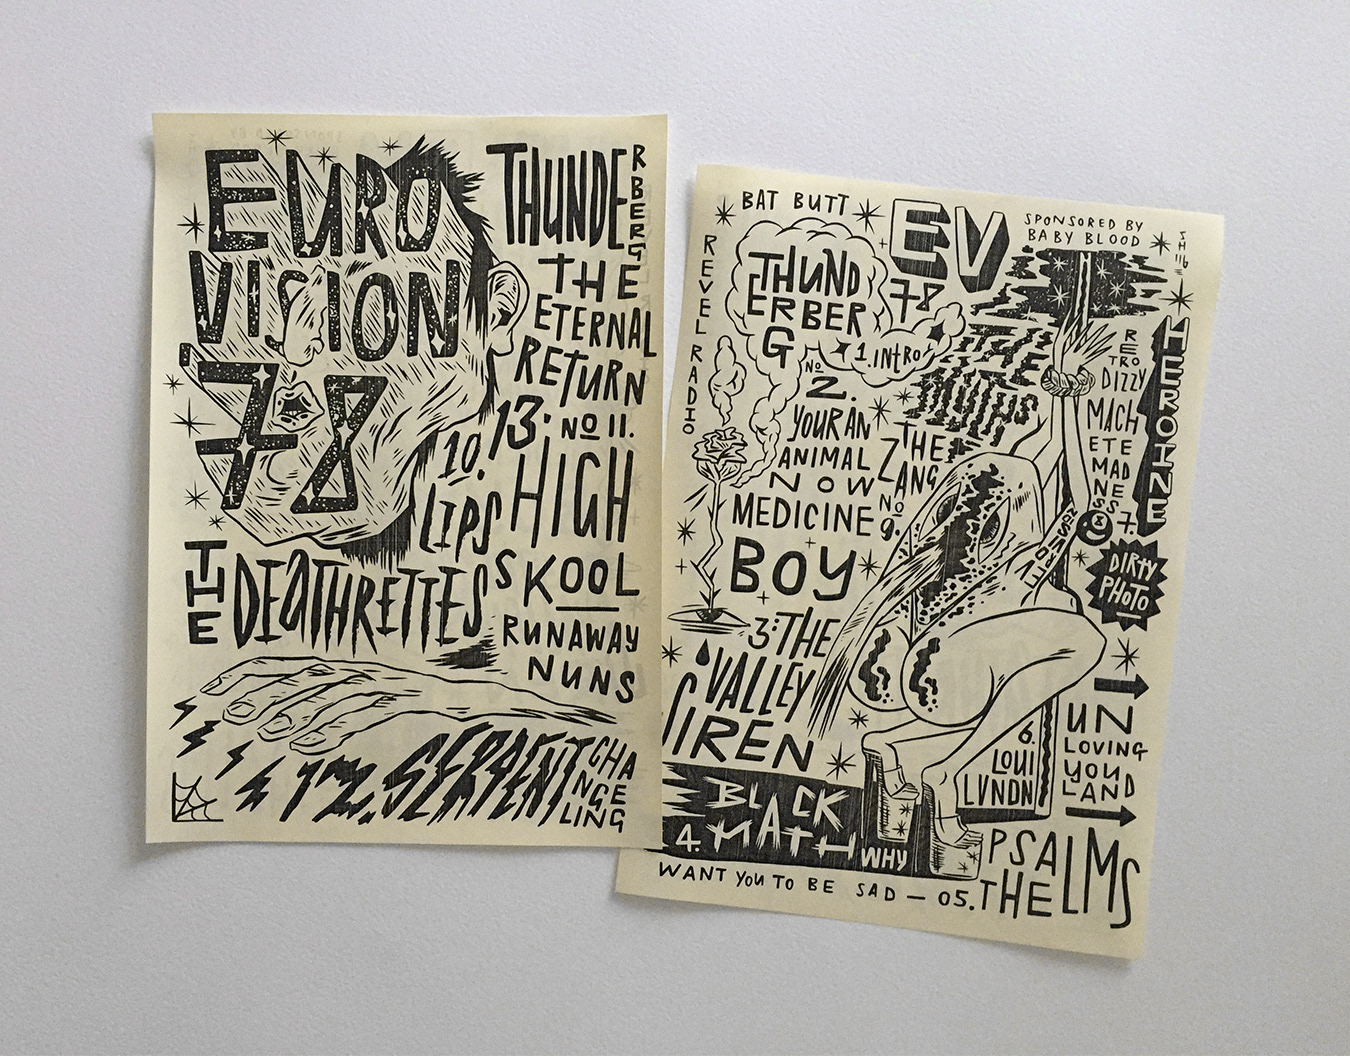 EURO
VISION
'78
THE DEATHRETTES
THUNDERBERG
THE
ETERNAL
RETURN
13.
No 11.
HIGH
SKOOL
RUNAWAY
NUNS
10.
LIPS
12. SERPENT
CHA
NGE
LING
BAT BUTT
EV
78
SPONSORED BY
BABY BLOOD
REVEL RADIO
THUND
ERBER
G
1. INTRO
No
2.
YOUR AN
ANIMAL
NOW
MEDICINE
BOY
3: THE
VALLEY
SIREN
BLACK
4. MATH
WHY
WANT YOU TO BE SAD — 05.
THE
PSALMS
THE
ZANG
No
9.
RE
TRO
DIZZY
MACH
ETE
MAD
NES
S
7.
HEROINE
DIRTY
PHOTO
6.
LOUI
LVNDN
UN
LOVING
YOU
LAND